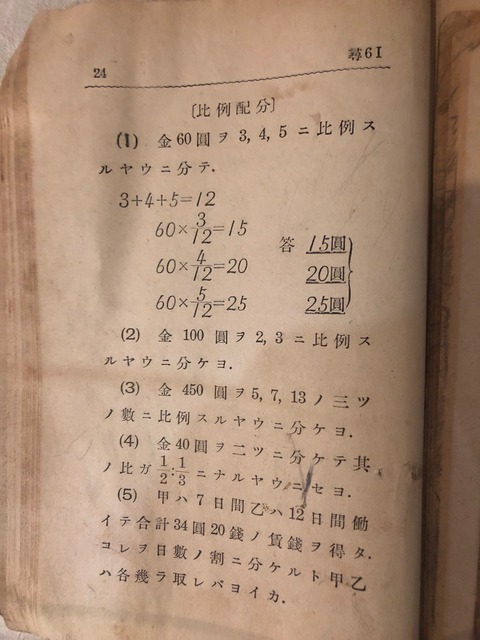 尋6I
24
〔比例配分〕
(1) 金60圓ヲ3,4,5ニ比例ス
ルヤウニ分テ.
3+4+5=12
60×3/12=15
60×4/12=20
60×5/12=25
答 15圓
20圓
25圓
(2) 金100圓ヲ2,3ニ比例ス
ルヤウニ分ケヨ.
(3) 金450圓ヲ5,7,13ノ三ツ
ノ數ニ比例スルヤウニ分ケヨ.
(4) 金40圓ヲ二ツニ分ケテ其
ノ比ガ1/2:1/3ニナルヤウニセヨ.
(5) 甲ハ7日間乙ハ12日間働
イテ合計34圓20錢ノ賃錢ヲ得タ.
コレヲ日數ノ割ニ分ケルト甲乙
ハ各幾ラ取レバヨイカ.